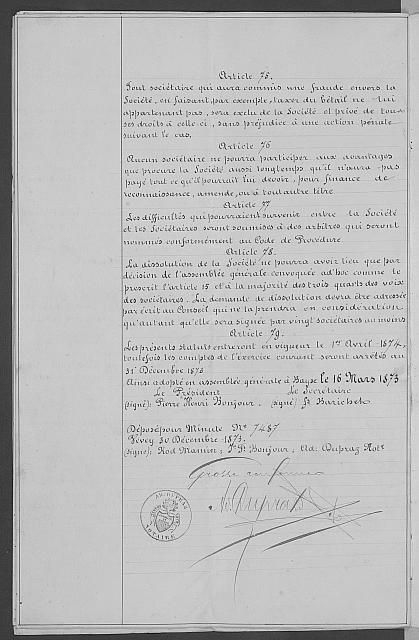 Article 75.
Tout sociétaire qui aura commis une fraude envers la
Société, en faisant, par exemple, taxer du bétail ne lui
appartenant pas, sera exclu de la Société et privé de tous
ses droits à celle ci, sans préjudice à une action pénale
suivant le cas.
Article 76
Aucun sociétaire ne pourra participer aux avantages
que procure la Société aussi longtemps qu'il n'aura pas
payé tout ce qu'il pourrait lui devoir, pour finance de
reconnaissance, amende, ou à tout autre titre
Article 77
Les difficultés qui pourraient survenir entre la Société
et les Sociétaires seront soumises à des arbitres qui seront
nommés conformément au Code de Procédure
Article 78.
La dissolution de la Société ne pourra avoir lieu que par
décision de l'assemblée générale convoquée ad hoc comme le
prescrit l'article 15 et à la majorité des trois quarts des voix
des sociétaires. La demande de dissolution devra être adressée
par écrit au Conseil qui ne la prendra en considération
qu'autant qu'elle sera signée par vingt sociétaires au moins
Article 79.
Les présents statuts entreront en vigueur le 1er Avril 1874,
toutefois les comptes de l'exercice courant seront arrêtés au
31 Décembre 1873
Ainsi adopté en assemblée générale à Bayse le 16 Mars 1873
Le Président Le Secrétaire
(signé): Pierre Henri Bonjour. (signé)
Déposé pour Minute No 7487
Vevey 30 Décembre 1873.
(signé): Rod Mamin; Bonjour; Ad: Dupraz Notre
Grosse
Dupraz
NOTAIRE